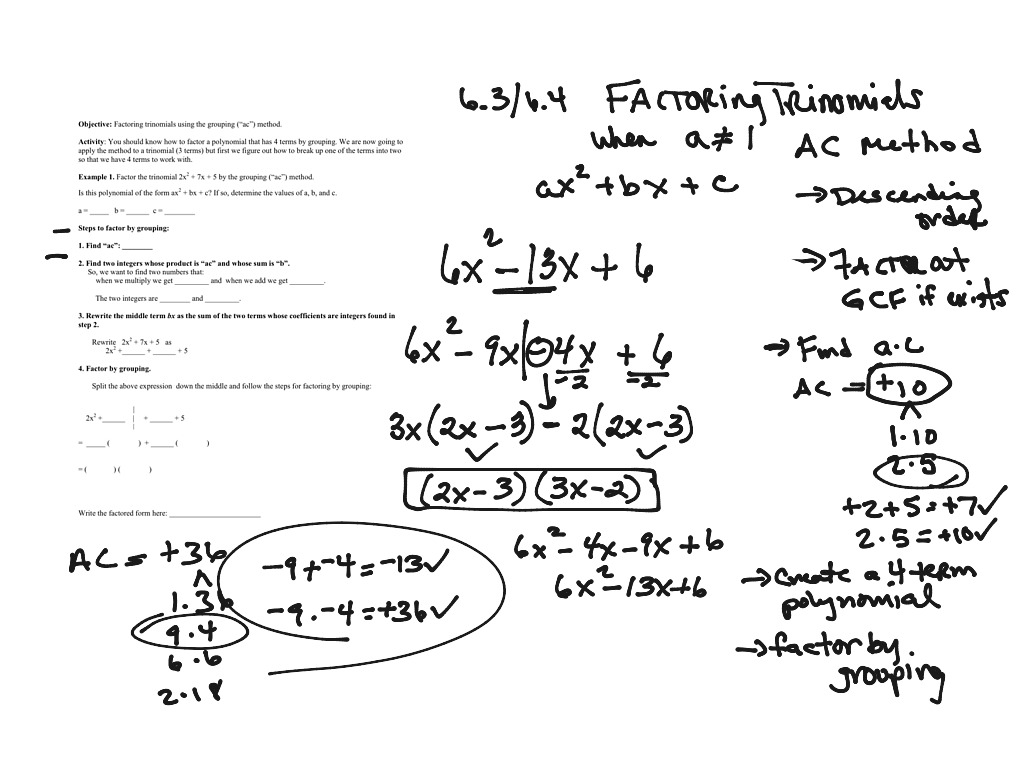 6.3/6.4 FACTORING TRINOMIALS
when a ≠ 1
ax² + bx + c
Objective: Factoring trinomials using the grouping ("ac") method.
Activity: You should know how to factor a polynomial that has 4 terms by grouping. We are now going to
apply the method to a trinomial (3 terms) but first we figure out how to break up one of the terms into two
so that we have 4 terms to work with.
Example 1. Factor the trinomial 2x² + 7x + 5 by the grouping ("ac") method.
Is this polynomial of the form ax² + bx + c? If so, determine the values of a, b, and c.
a = _____ b = ______ c = ________
Steps to factor by grouping:
1. Find "ac": ________
2. Find two integers whose product is "ac" and whose sum is "b".
So, we want to find two numbers that:
when we multiply we get _________ and when we add we get _________.
The two integers are ________ and _________.
3. Rewrite the middle term bx as the sum of the two terms whose coefficients are integers found in
step 2.
Rewrite 2x² + 7x + 5 as
2x² +______ + ______ + 5
4. Factor by grouping.
Split the above expression down the middle and follow the steps for factoring by grouping:
2x² +______ | + ______ + 5
= _____ ( ) + ______ ( )
= ( ) ( )
Write the factored form here: ________________________
6x² - 13x + 6
6x² - 9x | - 4x + 6
-2 -2
3x(2x - 3) - 2(2x - 3)
✓ ✓
(2x - 3)(3x - 2)
6x² - 4x - 9x + 6
6x² - 13x + 6
AC = +36
1·36
9·4
6·6
2·18
-9 + -4 = -13 ✓
-9 · -4 = +36 ✓
AC method
→ Descending
order
→ Factor out
GCF if exists
→ Find a·c
AC = +10
1·10
2·5
+2+5=+7 ✓
2·5=+10 ✓
→ Create a 4 term
polynomial
→ factor by
grouping